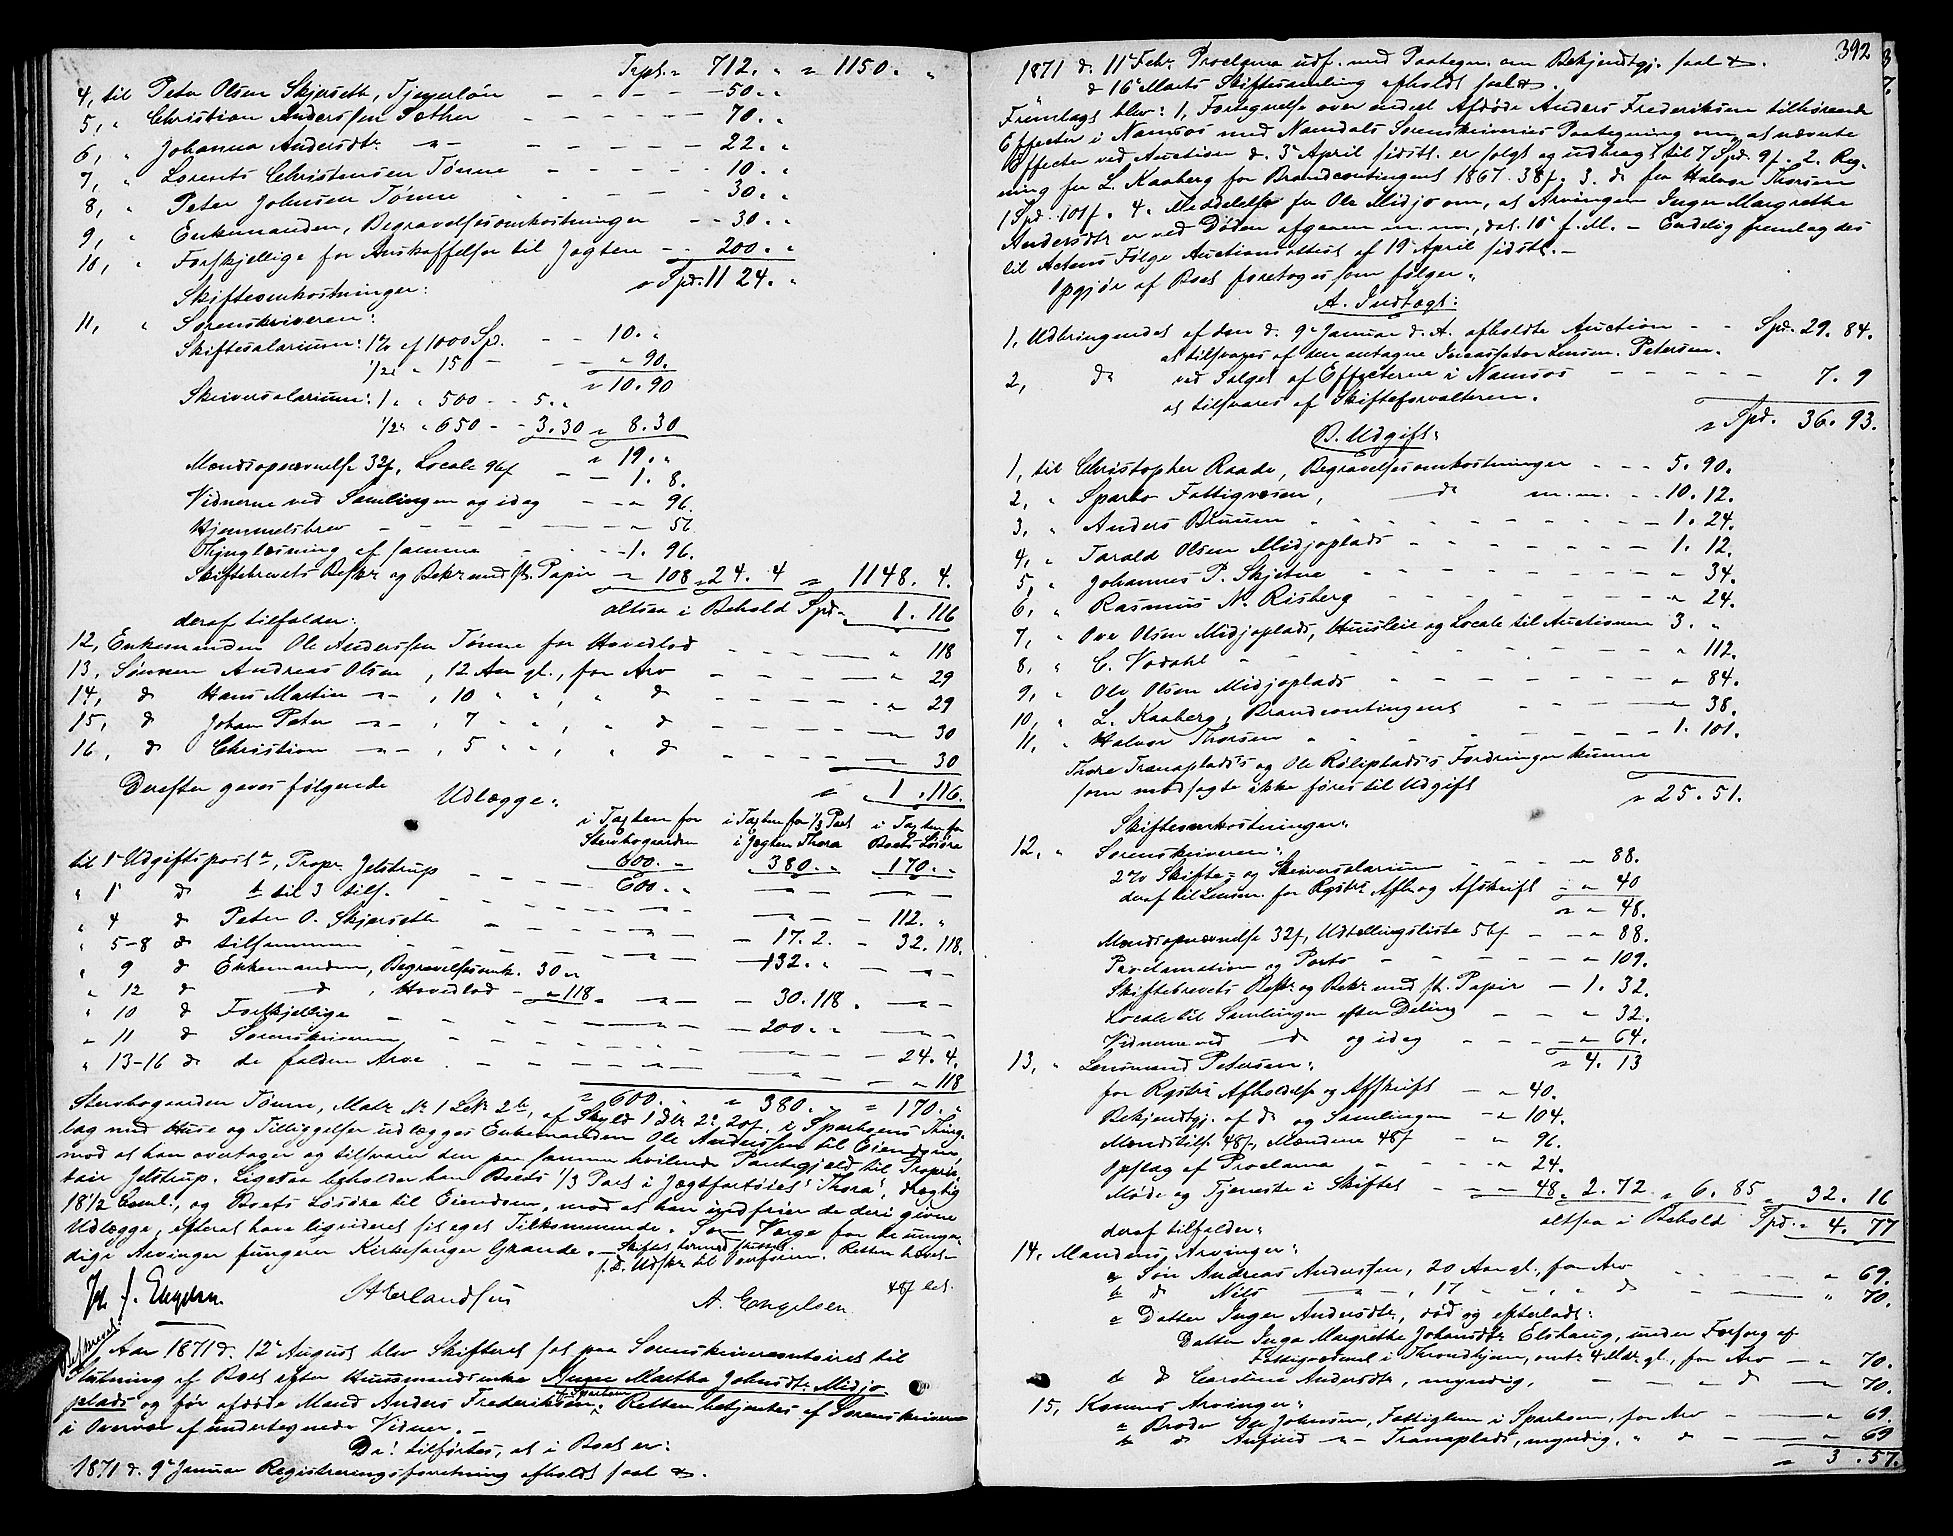 Trpt. " 712. " " 1150. "
4, til Peter Olsen Skjersett, Tjenerløn - - - 50. "
5, " Christian Anderssen Father - - - 70. "
6, " Johanna Andersdtr - - - 22. "
7, " Lorents Christensen Tønne - - - 10. "
8, " Peter Johnsen Tønne - - - 30. "
9, " Enkemanden, Begravelsesomkostninger - - 30. "
10, " Forskjellige for Anskaffelser til Jagten - - 200. "
" Spd. 1124. "
Skifteomkostninger:
11, " Sorenskriveren:
Skiftesalarium: 1% af 1000 Sp. - - 10. "
1/2% " 150 - - " 90.
" 10. 90
Skriversalarium: 1 " " 500 - - 5. "
1/2% " 650 - - 3. 30 " 8. 30
" 19. "
Mandsopnævnelse 32f, Locale 96f - - 1. 8.
Vidnerne ved Samlingen og idag - - " 96.
Hjemmelsbrev - - - " 57.
Thinglæsning af samme - - - 1. 96.
Skiftebrevets Beskr og Bekr med st. Papir " 108 " 24. 4 " 1148. 4.
altsaa i Behold Spd. " 1. 116
deraf tilfalder:
12, Enkemanden Ole Anderssen Tønne for Hovedlod - - - " 118
13, Sønnen Andreas Olsen, 12 Aar gl., for Arv - - - " 29
14, do Hans Martin - " - , 10 " " , " do - - - " 29
15, do Johan Peter - " - , 7 " " , " do - - - " 30
16, do Christian - " - , 5 " " , " do - - - " 30
" 1. 116.
Derefter gaves følgende
Udlægge:
i Taxten for Stervbogaarden
i Taxten for 1/3 Part i Jagten Thora
i Taxten for Boets Løsøre
600. " 380. " 170. "
til 1 Udgiftspost a, Propr. Jelstrup - - - 600. " - -
" 1 do b til 3 tils. - - -
" 4 do Peter O. Skjersett - - - 112. "
" 5-8 do tilsammen - - - 17. 2. - 32. 118.
" 9 do Enkemanden, Begravelsesomk. 30 " " - 132. " - -
" 12 do - do - , Hovedlod - " 118 - 30. 118. - -
" 10 do Forskjellige - - - 200. " - -
" 11 do Sorenskriveren - - - 24. 4.
" 13-16 do de faldne Arve - - - " 118
" 600. " " 380. " " 170. "
Stervbogaarden Tønne, Matr. No 1 Løbe No 2b, af Skyld 1 Dlr 2 " 20f, i Sparbyens Thing-
lag med Huse og Tilliggelser udlægges Enkemanden Ole Anderssen til Eiendom,
mod at han overtager og tilsvarer den paa samme hvilende Pantegjæld til Proprie-
tair Jelstrup. Ligesaa beholder han Boets 1/3 Part i Jagtfartøiet "Thora", drægtig
18 1/2 Coml., og Boets Løsøre til Eiendom, mod at han indfrier de deri givne
Udlægge, efterat have liqvideret sit eget Tilkommende. Som Værge for de umyn-
dige Arvinger fungerer Kirkesanger Grande. - Skiftet hermed sluttet
f. D. Udskr. til Ovfsten. Retten hævet -
Joh. J. Engelsen
O Herlandhus
A. Engelsen
48f bet.
Aar 1871 d. 12 August blev Skifteret sat paa Sorenskrivercontoiret til
Slutning af Boet efter Huusmandsenke Anne Martha Johnsdtr Midjo-
plads og før afdøde Mand Anders Frederiksen af Sparboen. Retten betjentes af Sorenskriveren
i Overvær af undertegnede Vidner. -
Da: tilførtes, at i Boet er:
1871 d. 9 Januar Registreringsforretning afholdt saal. &.
392
1871 d. 11 Febr. Proclama udf. med Paategn. om Bekjendtgj. saal &.
d 16 Marts Skiftesamling afholdt saal &.
Fremlagt blev: 1, Fortegnelse over endel Afdøde Anders Frederiksen tilhørende
Effecter i Namsos med Namdals Sorenskriveries Paategning om at nævnte
Effecter ved Auction d. 3 April sidstl. er solgt og udbragt til 7 Spd. 9f. 2. Reg-
ning fra L. Kaaberg for Brandcontingent 1867 38f. 3. do fra Halvor Thorsen
1 Spd. 101f. 4. Meddelelse fra Ole Midjo om, at Arvingen Inger Margrethe
Andersdtr er ved Døden afgaaen m. m., dat. 10 f. M. - Endelig fremlagdes
til Actens Følge Auctionsattest af 19 April sidstl. -
Opgjør af Boet foretoges som følger:
A. Indtægt:
1, Udbringendet af den d. 9 Januar d. A. afholdte Auction - - Spd. 29. 84.
at tilsvares af den antagne Incassator Lensm. Petersen.
2, do ved Salget af Effecterne i Namsos - - - 7. 9
at tilsvares af Skifteforvalteren.
" Spd. 36. 93.
B. Udgift:
1, til Christopher Raade, Begravelsesomkostninger - - - 5. 90.
2, " Sparbo Fattigvæsen, - do - m. m. - - 10. 12.
3, " Anders Bruum - - - 1. 24.
4, " Tarald Olsen Midjoplads - - - 1. 12.
5, " Johannes P. Skjetne - - - " 34.
6, " Rasmus N. Risberg - - - " 24.
7, " Ove Olsen Midjoplads, Huusleie og Locale til Auctionen 3. "
8, " C. Vodahl - - - " 112.
9, " Ole Olsen Midjoplads - - - " 84.
10, " L. Kaaberg, Brandcontingent - - - " 38.
11, " Halvor Thorsen - - - 1. 101.
Thore Tranaplads's og Ole Røliplads's Fordringer kunne
som modsagte ikke føres til Udgift
" 25. 51.
Skifteomkostninger:
12, " Sorenskriveren:
2% Skifte- og Skriversalarium - - - " 88.
deraf til Lensm. for Rgstrs Afh. og Afskrift - - " 40
" " 48.
Mandsopnævnelse 32f, Udtællingsliste 56f - - " 88.
Proclamation og Porto - - - " 109.
Skiftebrevets Beskr. og Bekr. med st. Papir - 1. 32.
Locale til Samlingen efter Deling - - " 32.
Vidnerne ved - do - og idag - - " 64.
" 4. 13
13, " Lensmand Petersen:
for Rgstrs Afholdelse og Afskrift - " 40.
Bekjendtgj. af do og Samlingen - " 104.
Mandstils. 48f, Mændene 48f - " 96.
Opslag af Proclama - - " 24.
Møde og Tjeneste i Skiftet - - " 48. " 2. 72. " 6. 85 " 32. 16
altsaa i Behold Spd. " 4. 77
deraf tilfalder:
14. Mandens Arvinger:
a Søn Andreas Anderssen, 20 Aar gl., for Arv - - - " 69.
b do Nils - " - , 17 " " , " do - - - " 70.
c Datter Inger Andersdtr, død og efterladt:
Datter Inga Margrethe Johansdtr Elshaug, under Forsorg af
Fattigvæsenet i Throndhjem, omtr. 4 Mdr. gl., for Arv - " 70.
d do Caroline Andersdtr, myndig, - - do - " 70.
15, Konens Arvinger:
a Broder Ole Johnsen, Fattiglem i Sparboen, for Arv - - " 69.
b do Anfind - " - Tranaplads, myndig, " do - - " 69
" 3. 57.